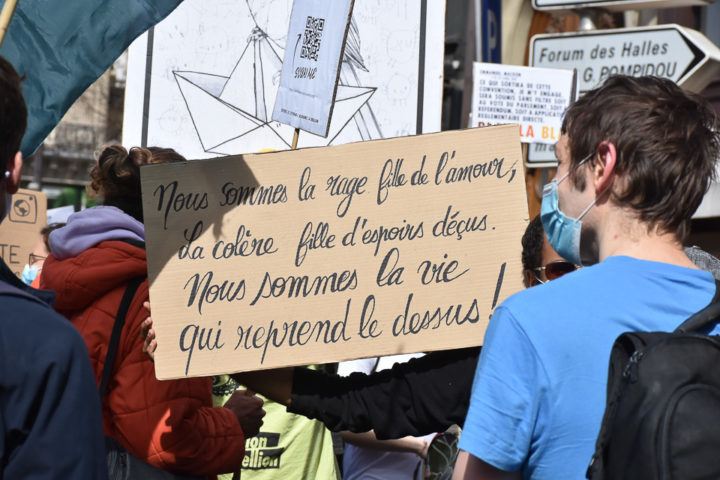 Forum des Halles
G. POMPIDOU
EMMANUEL MACRON
CE QUI SORTIRA DE CETTE
CONVENTION, JE M'ENGAGE,
SERA SOUMIS SANS FILTRE SOIT
AU VOTE DU PARLEMENT, SOIT
REFERENDUM, SOIT A APPLICATION
REGLEMENTAIRE DIRECTE.
LA BLA
P
Nous sommes la rage fille de l'amour,
La colère fille d'espoirs déçus.
Nous sommes la vie
qui reprend le dessus !
TE